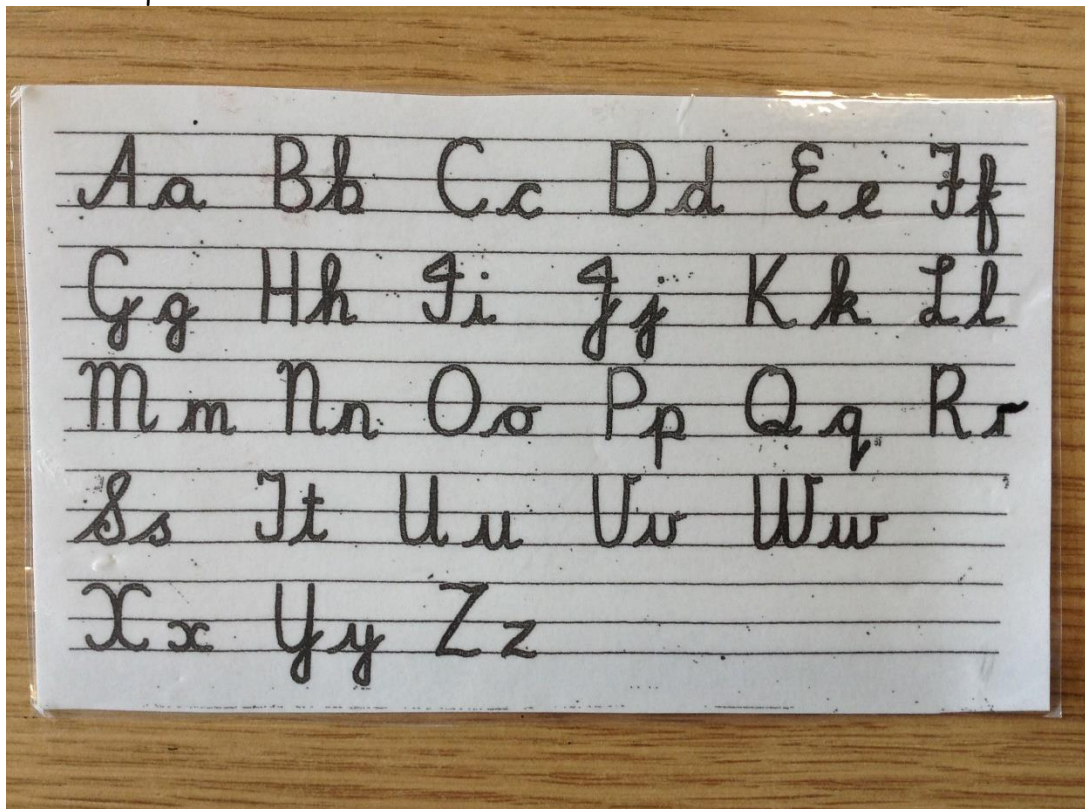 Aa Bb Cc Dd Ee Ff
Gg Hh Ii Jj Kk Ll
Mm Nn Oo Pp Qq Rr
Ss Tt Uu Vv Ww
Xx Yy Zz